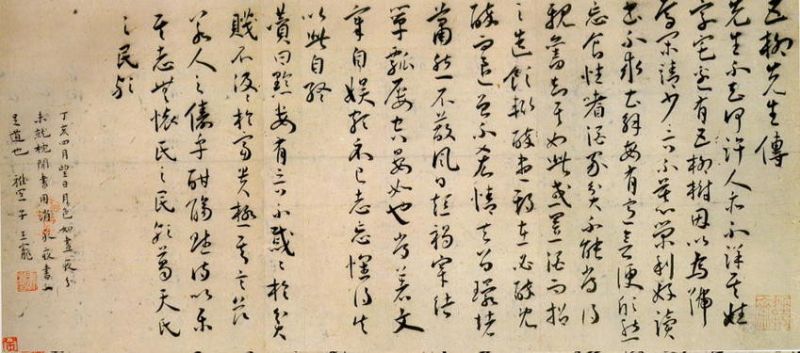 五柳先生傳
先生不知何許人亦不詳其姓
字宅邊有五柳樹因以為號
焉閑靖少言不慕榮利好讀
書不求甚解每有會意便欣然
忘食性嗜酒家貧不能常得
親舊知其如此或置酒而招
之造飲輒醉期在必醉既
醉而退曾不吝情去留環堵
蕭然不蔽風日短褐穿結
簞瓢屢空晏如也常著文
章自娛頗示己志忘懷得失
以此自終
贊曰黔婁有言不戚々於貧
賤不汲々於富貴極其言茲
若人之儔乎酣觴賦詩以樂
其志無懷氏之民歟葛天氏
之民歟
丁亥四月望日月色如晝夜分
未就枕閒書用消永夜書
王道也 雅宜子王寵